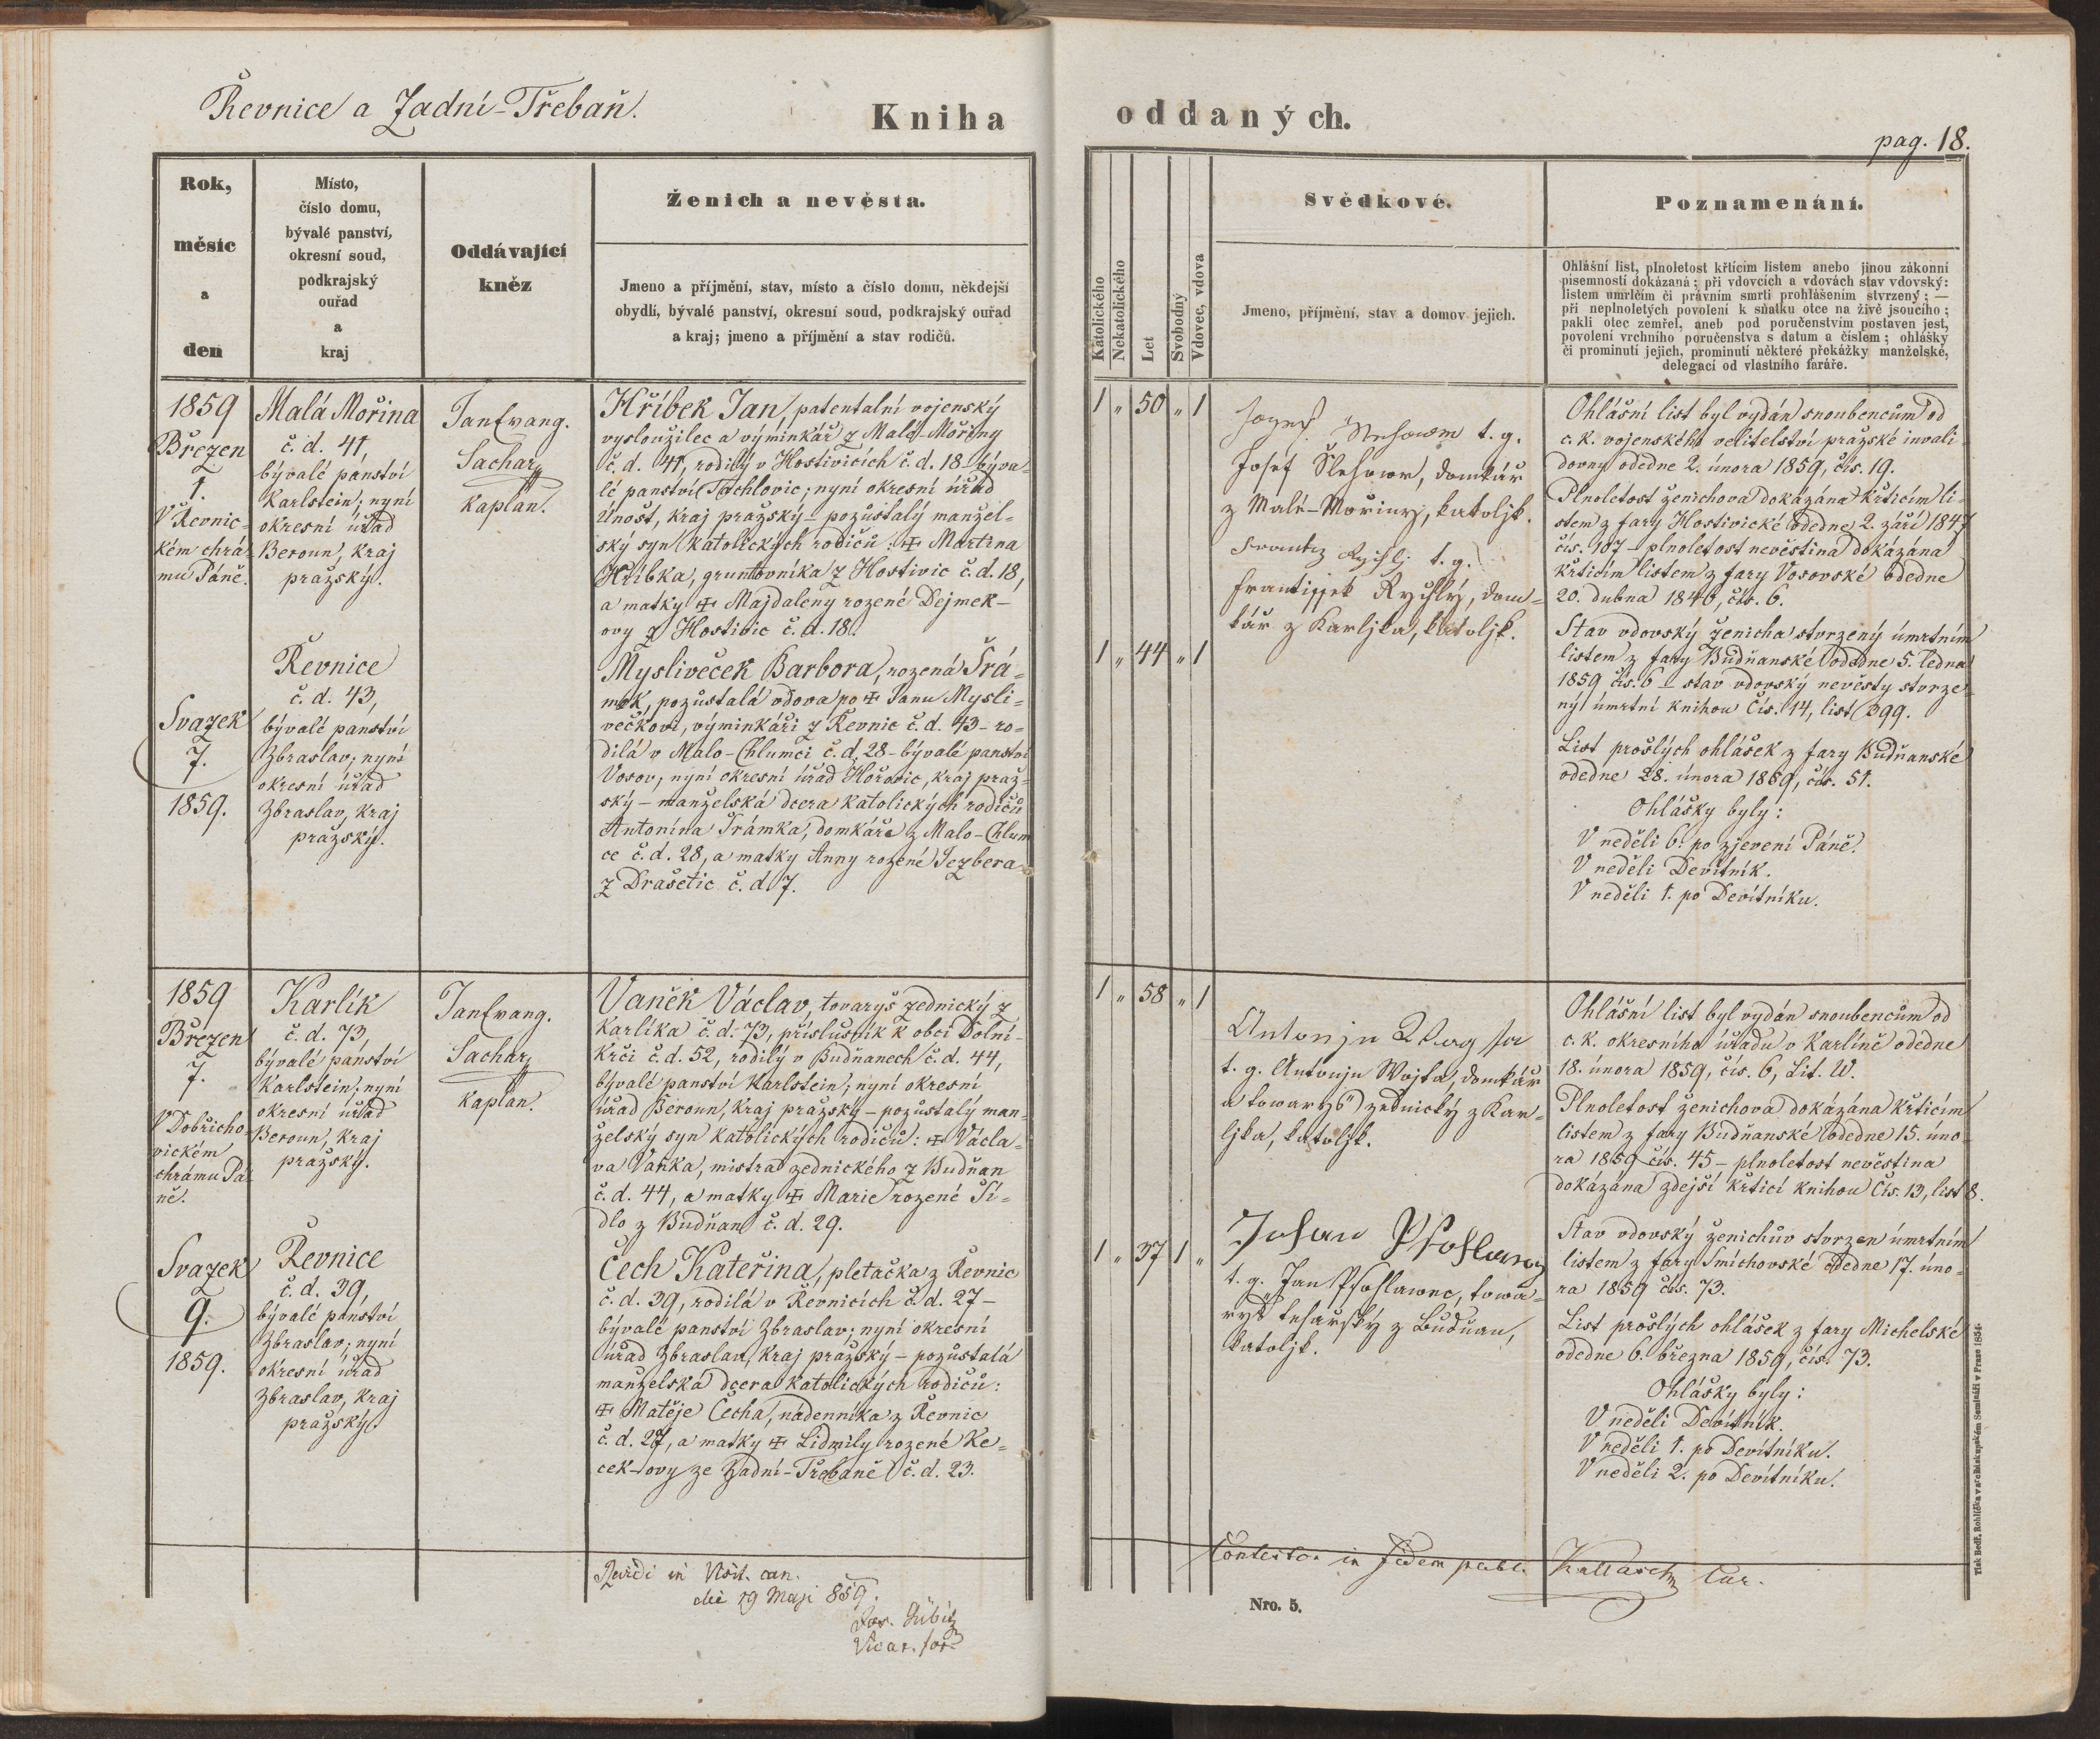 Řevnice a Zadní-Třebaň.
Kniha
oddaných.
pag. 18.
Rok,
měsíc
a
den
Místo,
číslo domu,
bývalé panství,
okresní soud,
podkrajský
ouřad
a
kraj
Oddávající
kněz
Ženich a nevěsta.
Jmeno a příjmění, stav, místo a číslo domu, někdejší
obydlí, bývalé panství, okresní soud, podkrajský ouřad
a kraj; jmeno a příjmění a stav rodičů.
Katolického
Nekatolického
Let
Svobodný
Vdovec, vdova
Svědkové.
Jmeno, příjmění, stav a domov jejich.
Poznamenání.
Ohlášní list, plnoletost křticím listem anebo jinou zákonní
písemností dokázaná; při vdovcích a vdovách stav vdovský:
listem umrlčím či právním smrti prohlášením stvrzený; —
při neplnoletých povolení k sňatku otce na živě jsoucího;
pakli otec zemřel, aneb pod poručenstvím postaven jest,
povolení vrchního poručenstva s datum a číslem; ohlášky
či prominutí jejich, prominutí některé překážky manželské,
delegací od vlastního faráře.
1859
Březen
1.
V Řevnic-
kém chrá-
mu Páně.
Svazek
7.
1859.
Malá Mořina
č. d. 41,
bývalé panství
Karlstein; nyní
okresní úřad
Beroun, kraj
pražský.
Řevnice
č. d. 43,
bývalé panství
Zbraslav; nyní
okresní úřad
Zbraslav, kraj
pražský.
Jan Evang.
Sachar
kaplan.
Hříbek Jan, patentalní vojenský
vysloužilec a výminkář z Malé-Mořiny
č. d. 41, rodilý v Hostivicích č. d. 18 býva-
lé panství Tachlovic; nyní okresní úřad
Únošt, kraj pražský – pozůstalý manžel-
ský syn katolických rodičů: ✠ Martina
Hříbka, gruntovníka z Hostivic č. d. 18,
a matky ✠ Majdaleny rozené Dejmek-
ovy z Hostivic č. d. 18.
Mysliveček Barbora, rozená Šrá-
mek, pozůstalá vdova po ✠ Janu Mysli-
večkovi, výminkáři z Řevnic č. d. 43 – ro-
dilá v Malo-Chlumci č. d. 28 – bývalé panství
Vosov; nyní okresní úřad Hořovic, kraj praž-
ský – manželská dcera katolických rodičů
Antonína Šrámka, domkáře z Malo-Chlum
ce č. d. 28, a matky Anny rozené Jezbera
z Drašetic č. d. 7.
1 „ 50 „ 1
1 „ 44 „ 1
t. g.
Josef, domkář
z Malé-Mořiny, katoljk.
t. g.
Frantissek Rychlý, dom-
kář z Karljka, katoljk.
Ohlášní list byl vydán snoubencům od
c. k. vojenského velitelství pražské invali-
dovny odedne 2. února 1859, čís. 19.
Plnoletost ženichova dokázána křticím li-
stem z fary Hostivické odedne 2. září 1847
čís. 107 – plnoletost nevěstina dokázána
křticím listem z fary Vosovské odedne
20. dubna 1846, čís. 6.
Stav vdovský ženicha stvrzený úmrtním
listem z fary Budňanské odedne 5. ledna
1859 čís. 6 – stav vdovský nevěsty stvrze-
ný úmrtní knihou Čís. 14, list 399.
List prošlých ohlášek z fary Budňanské
odedne 28. února 1859, čís. 51.
Ohlášky byly:
V neděli 6. po zjevení Páně.
V neděli Devítník.
V neděli 1. po Devítníku.
1859
Březen
7.
V Dobřicho-
vickém
chrámu Pá-
ně.
Svazek
9.
1859.
Karlík
č. d. 73,
bývalé panství
Karlstein; nyní
okresní úřad
Beroun, kraj
pražský.
Řevnice
č. d. 39,
bývalé panství
Zbraslav; nyní
okresní úřad
Zbraslav, kraj
pražský.
Jan Evang.
Sachar
kaplan.
Vaněk Václav, tovaryš zednický z
Karlíka č. d. 73, příslušník k obci Dolní-
Krči č. d. 52, rodilý v Budňanech č. d. 44,
bývalé panství Karlstein; nyní okresní
úřad Beroun, kraj pražský – pozůstalý man-
želský syn katolických rodičů: ✠ Václa-
va Vaňka, mistra zednického z Budňan
č. d. 44, a matky ✠ Marie rozené Ší-
dlo z Budňan č. d. 29.
Čech Kateřina, pletačka z Řevnic
č. d. 39, rodilá v Řevnicích č. d. 27 –
bývalé panství Zbraslav; nyní okresní
úřad Zbraslav, kraj pražský – pozůstalá
manželská dcera katolických rodičů:
✠ Matěje Čecha, nádenníka z Řevnic
č. d. 27, a matky ✠ Lidmily rozené Ke-
cek-ovy ze Zadní-Třebaně č. d. 23.
1 „ 58 „ 1
1 „ 37 1 „
Antonjn
t. g. Antonjn Wojta, domkář
a towaryš zednický z Kar-
ljka, katoljk.
Johan
t. g. Jan, towa-
ryš tesařský z Budňan,
katoljk.
Ohlášní list byl vydán snoubencům od
c. k. okresního úřadu v Karlíně odedne
18. února 1859, čís. 6, Lit. W.
Plnoletost ženichova dokázána křticím
listem z fary Budňanské odedne 15. úno-
ra 1859 čís. 45 – plnoletost nevěstina
dokázána zdejší křticí knihou Čís. 13, list 8.
Stav vdovský ženichův stvrzen úmrtním
listem z fary Smíchovské odedne 17. úno-
ra 1859 čís. 73.
List prošlých ohlášek z fary Michelské
odedne 6. března 1859, čís. 73.
Ohlášky byly:
V neděli Devítník.
V neděli 1. po Devítníku.
V neděli 2. po Devítníku.
in Visit. can.
die 19 Maji 859.
Vicar. for.
in fidem publ.
Nro. 5.
Tisk Bedř. Rohlíčka v arcibiskupském Semináři v Praze 1854.